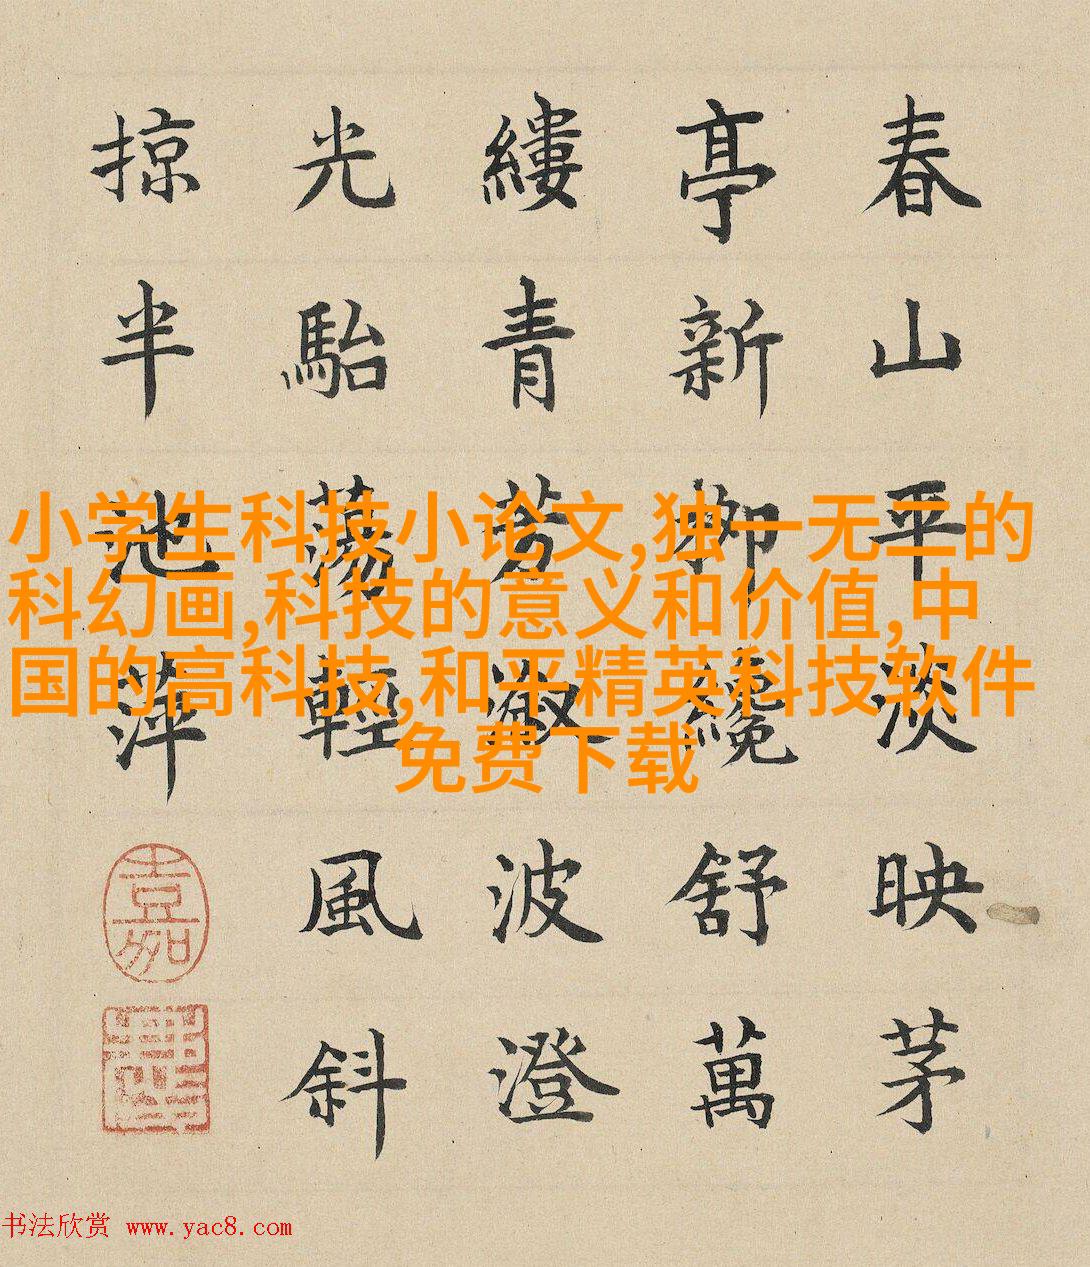 春山平淡映茅
亭新柳纔舒萬
縷青芳漵波澄
光駘蕩輕風斜
掠半池萍
嘉
小学生科技小论文,独一无二的
科幻画,科技的意义和价值,中
国的高科技,和平精英科技软件
免费下载
书法欣赏 www.yac8.com